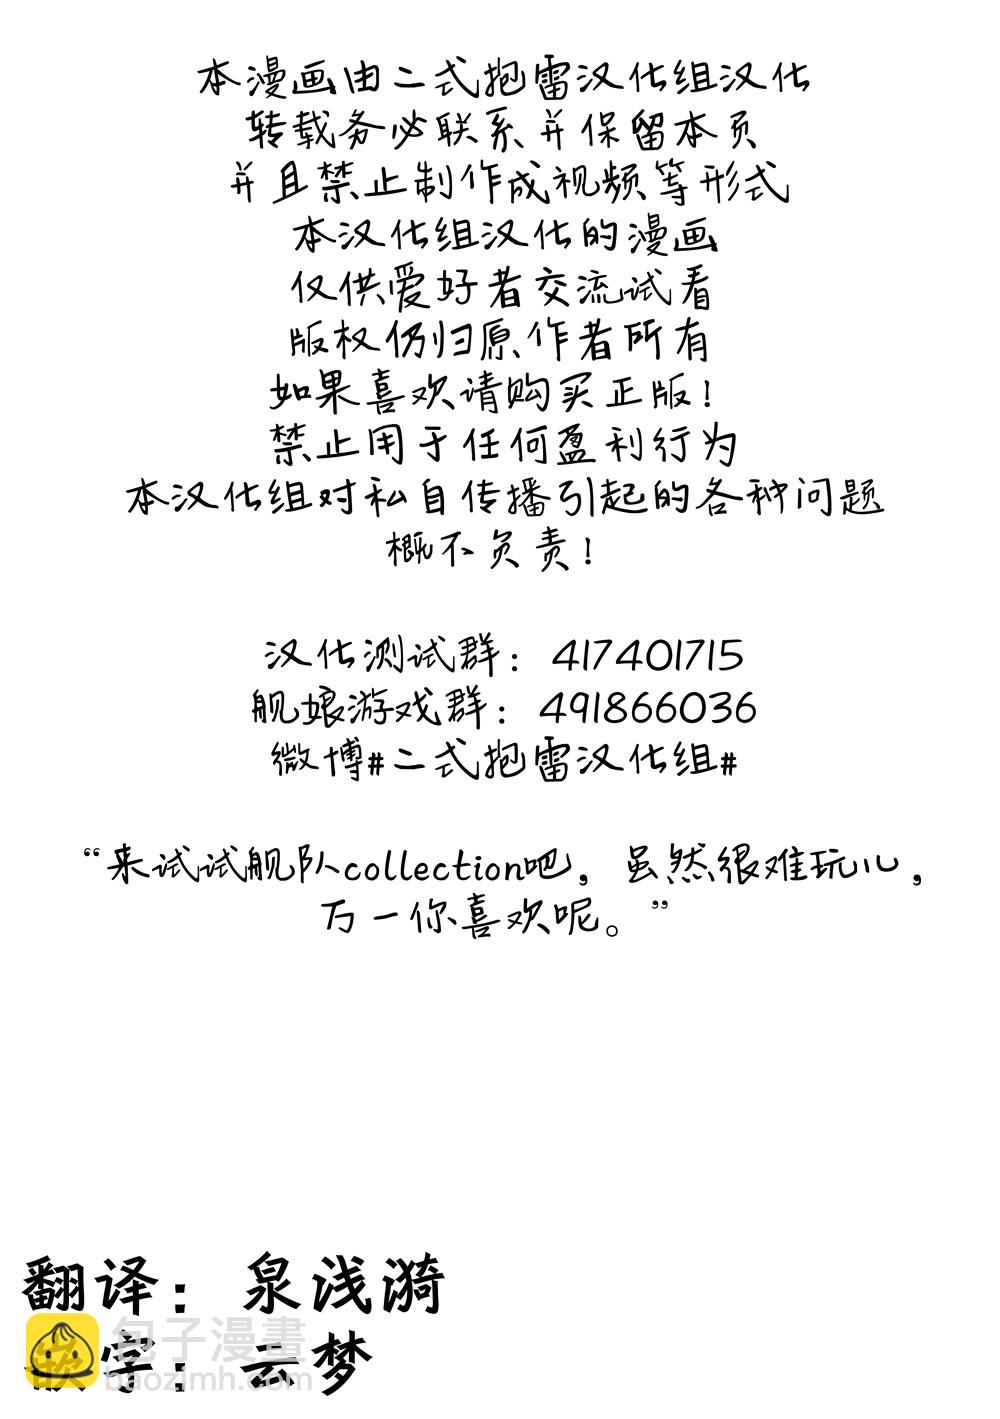 本漫画由二式抱雷汉化组汉化
转载务必联系并保留本页
并且禁止制作成视频等形式
本汉化组汉化的漫画
仅供爱好者交流试看
版权仍归原作者所有
如果喜欢请购买正版！
禁止用于任何盈利行为
本汉化组对私自传播引起的各种问题
概不负责！
汉化测试群：417401715
舰娘游戏群：491866036
微博#二式抱雷汉化组#
“来试试舰队collection吧，虽然很难玩儿，
万一你喜欢呢。”
翻译：泉浅漪
嵌字：云梦
包子漫畫
baozimh.com